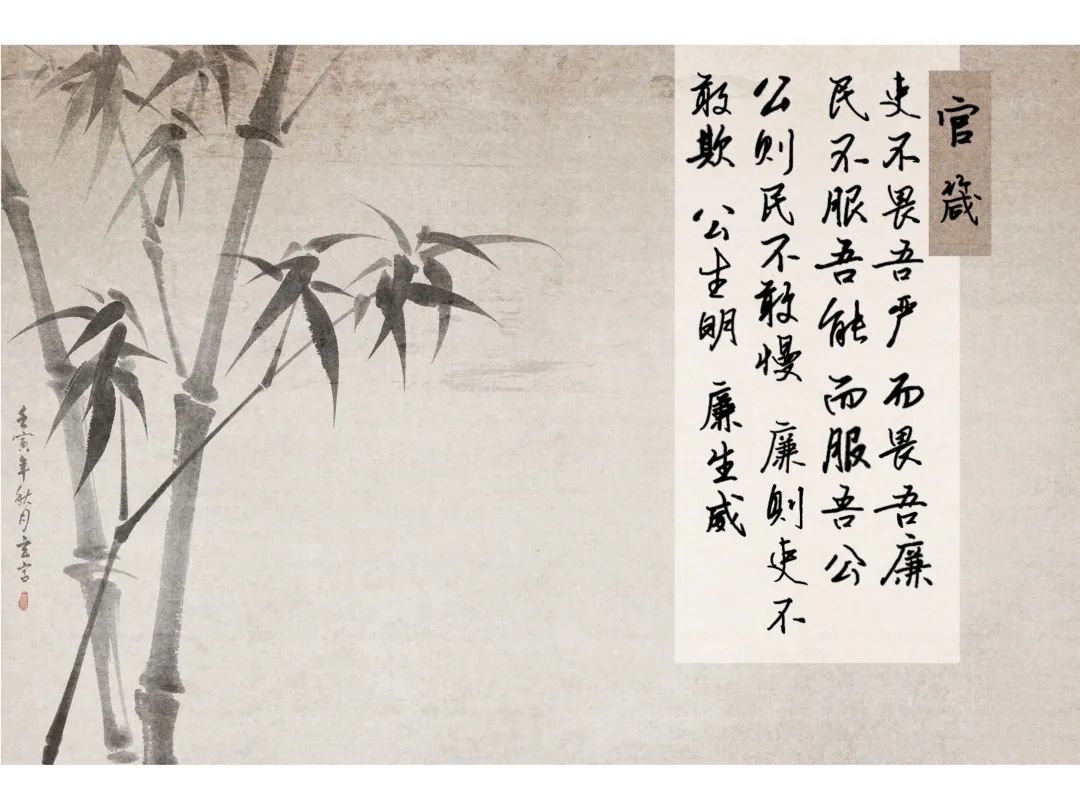 官箴
吏不畏吾严 而畏吾廉
民不服吾能 而服吾公
公则民不敢慢 廉则吏不
敢欺 公生明 廉生威
壬寅年秋月